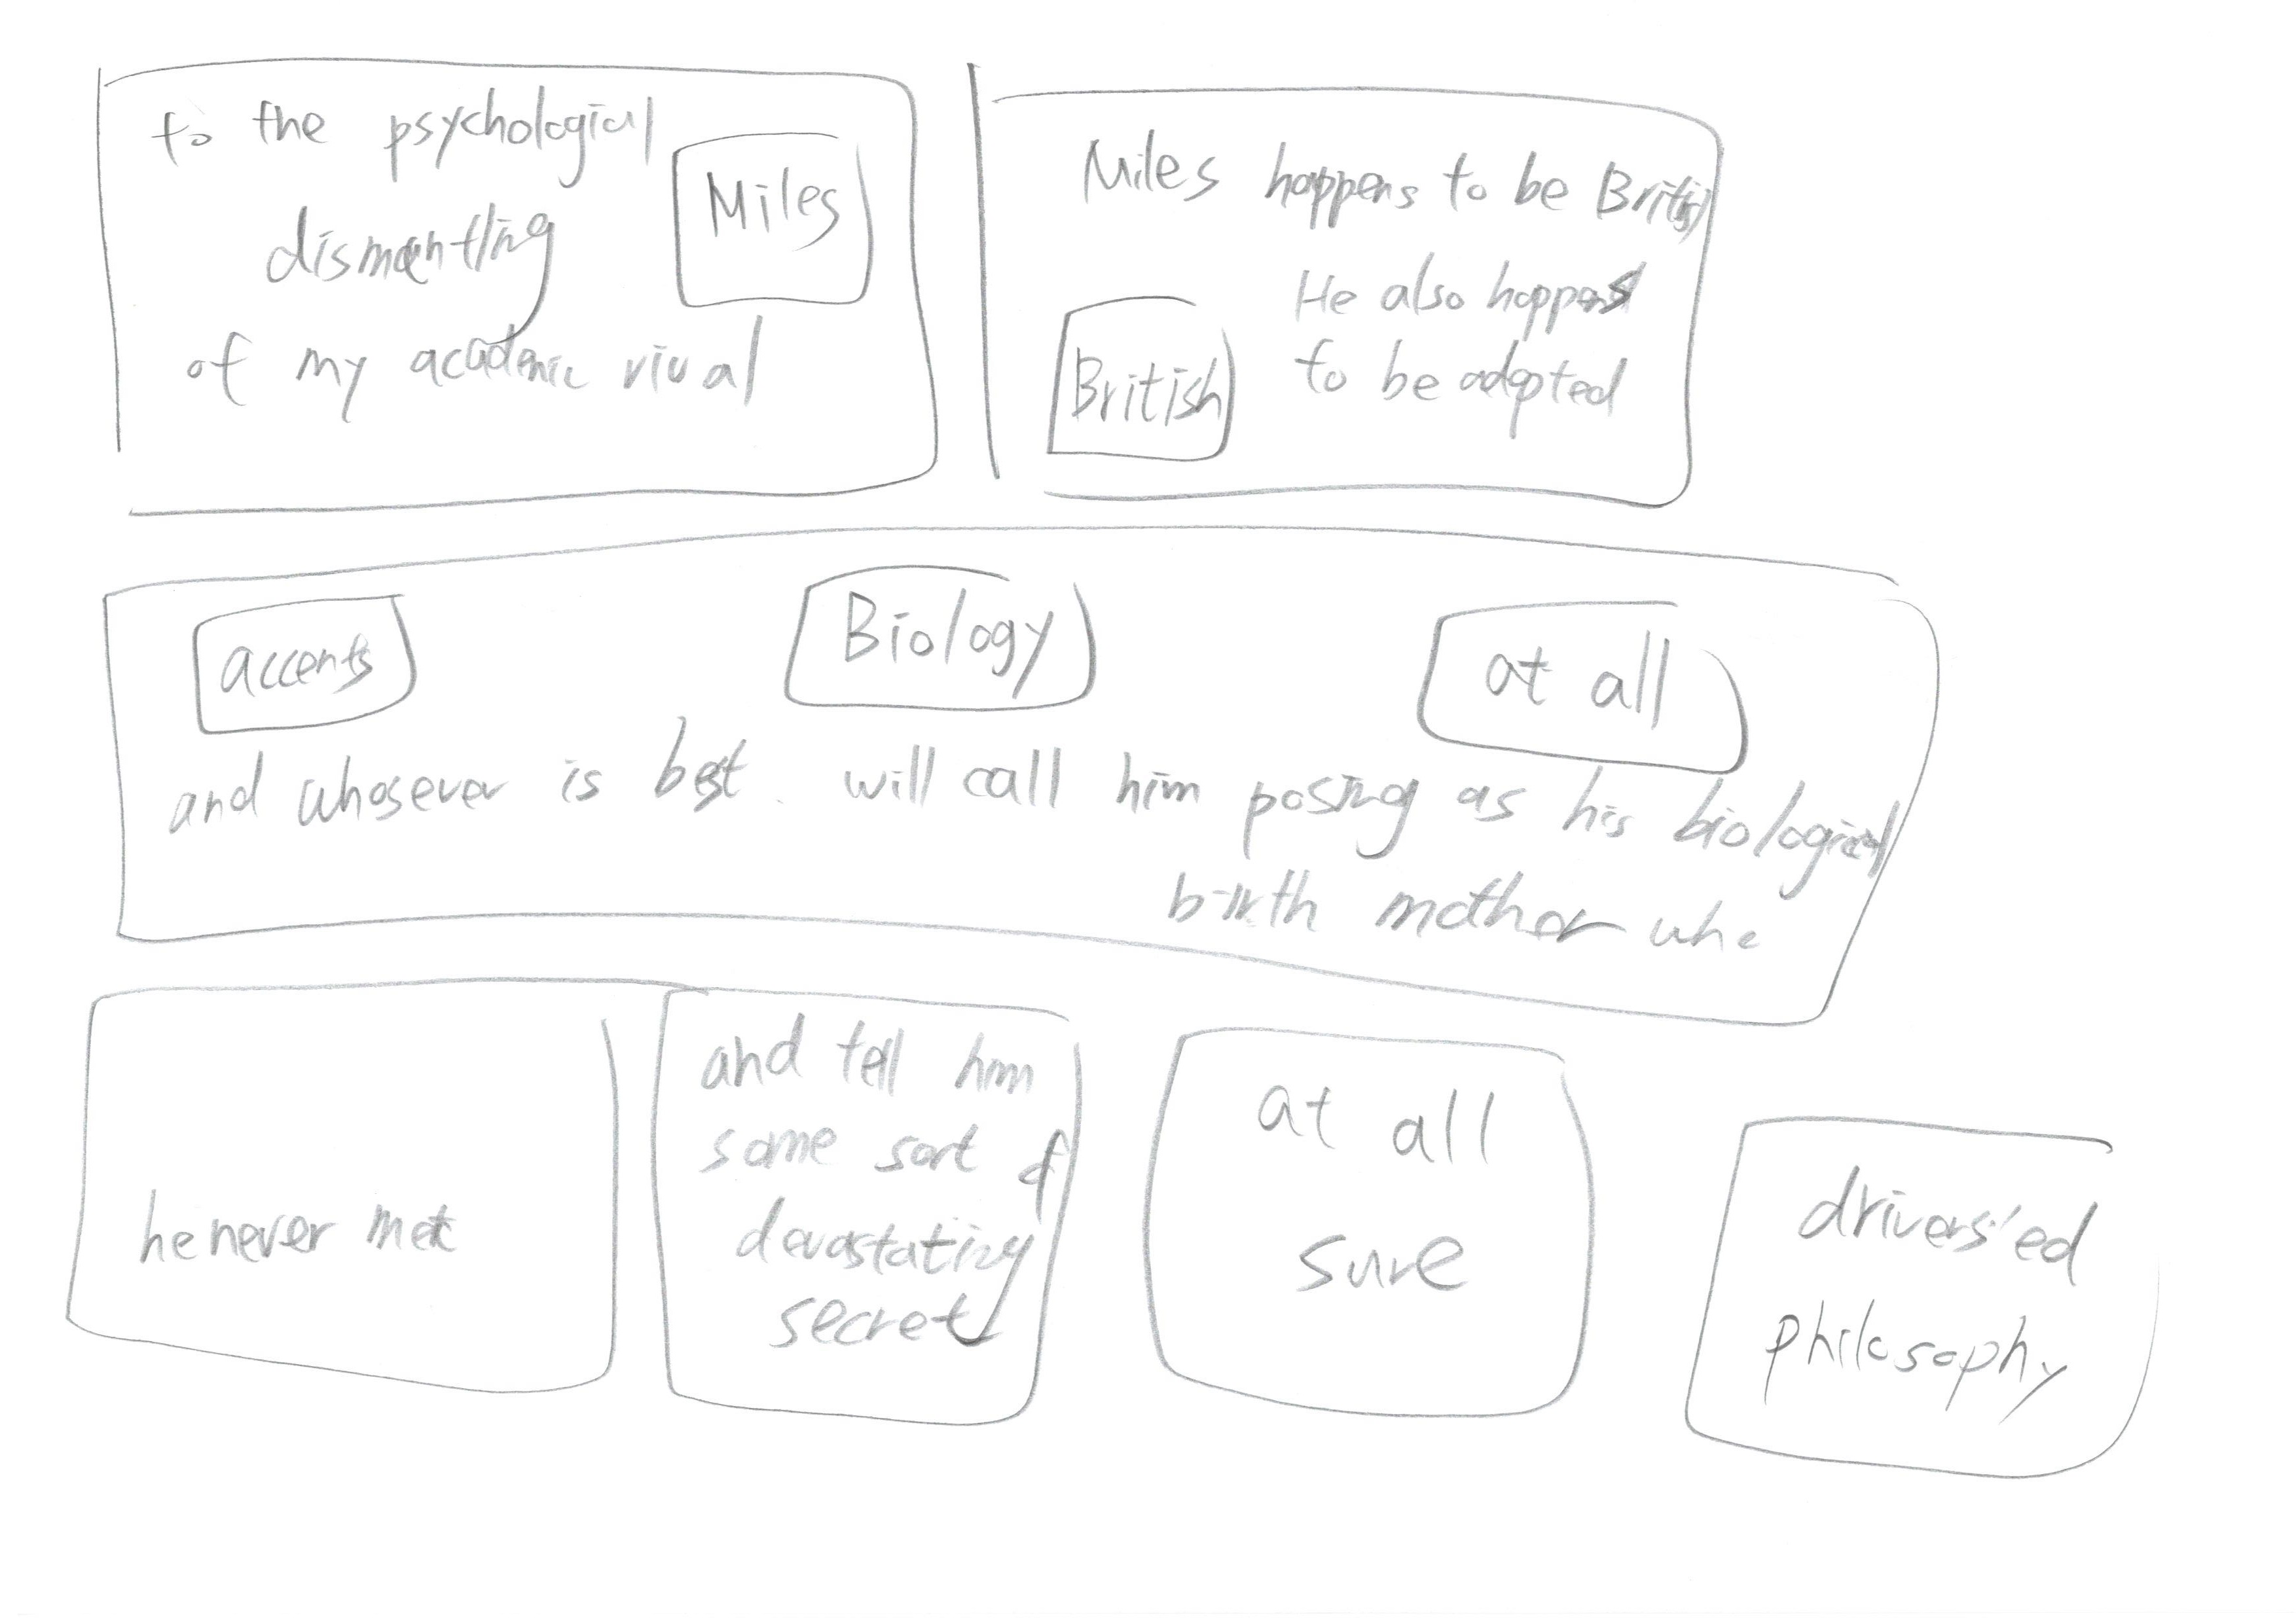 to the psychological
Miles
dismantling
of my academic rival
Miles happens to be British
He also happens
British
to be adopted
accents
Biology
at all
and whosever is best. will call him posing as his biological
birth mother who
he never met
and tell him
some sort of
devastating
secret
at all
sure
drivers'ed
philosophy